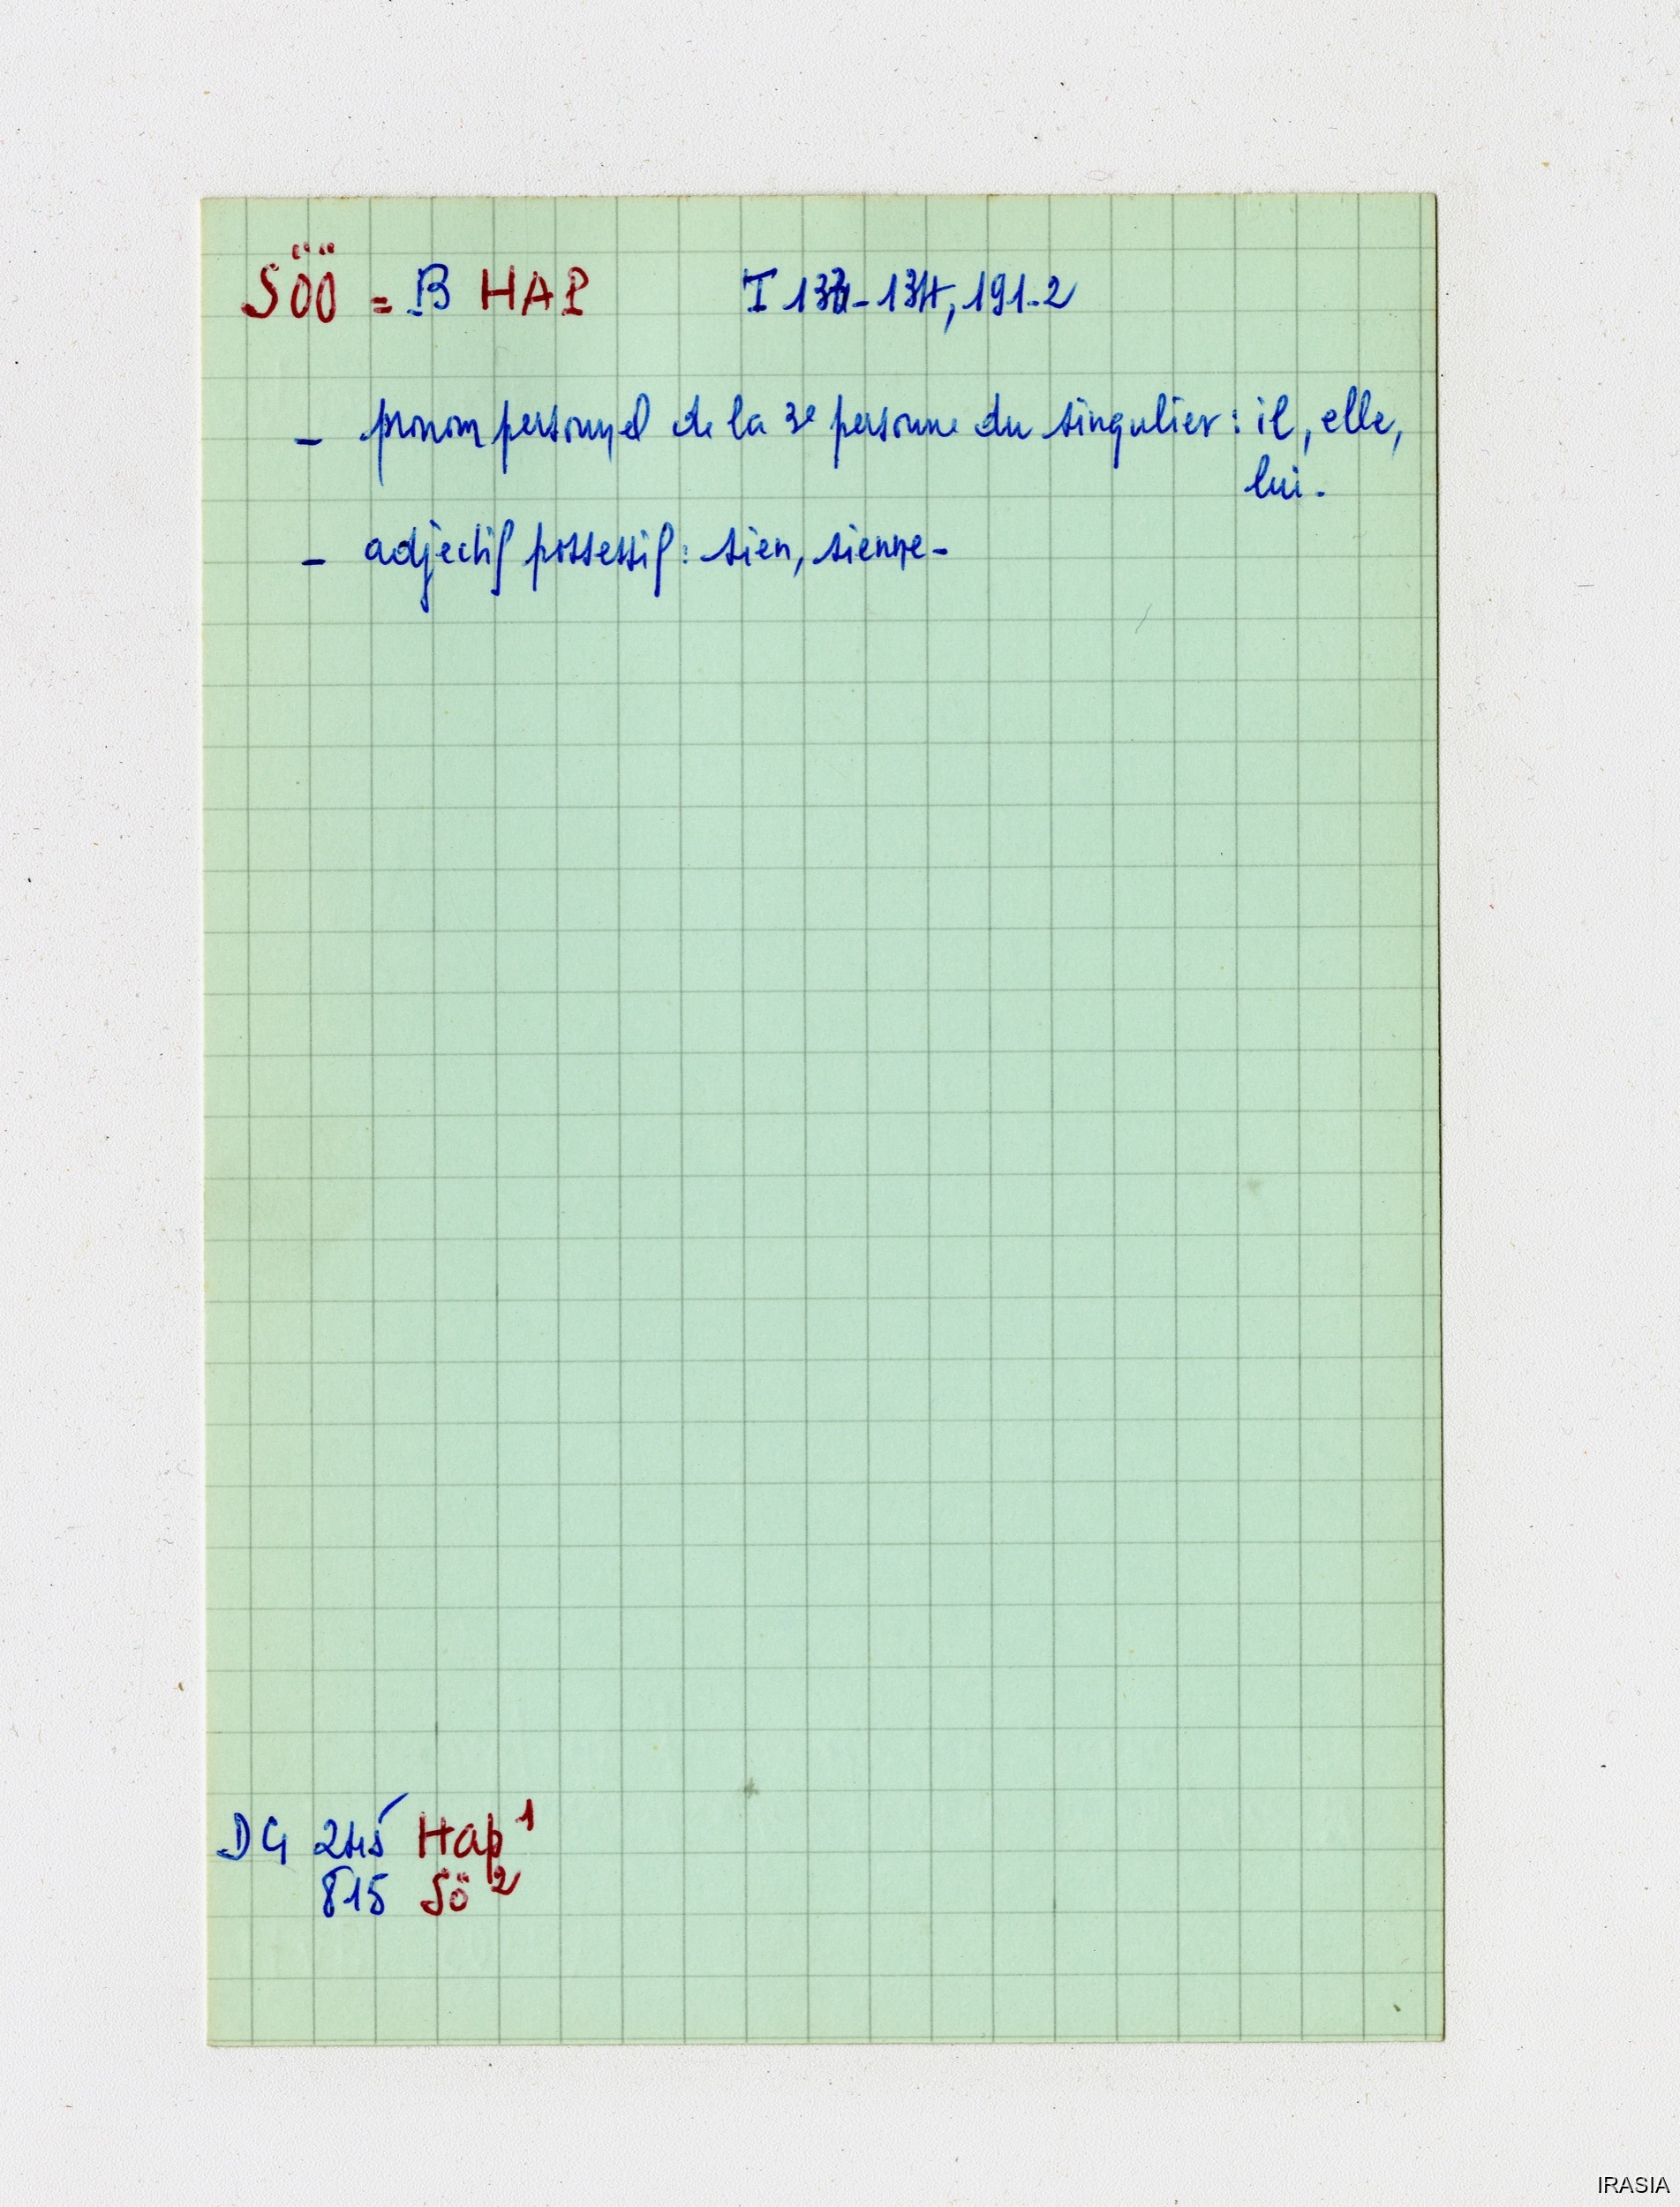 SÖÖ = B HAP I 133-134, 191-2
- pronom personnel de la 3e personne du singulier : il, elle,
lui.
- adjectif possessif : sien, sienne-
DG 245 Hap 1
815 Sö 2
IRASIA